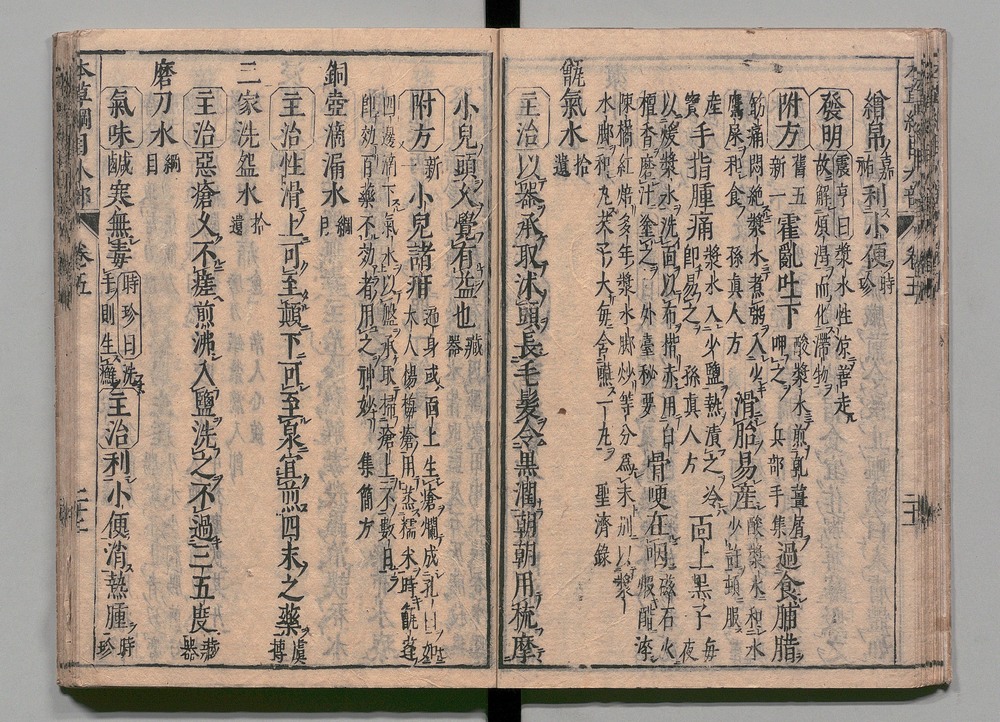 繪帛祐嘉利小便時珍
發明震亨曰漿水性涼善走故解煩渴而化滯物
附方舊五新一霍亂吐下酸漿水煎乳薑屑呷之兵部手集過食脯腊
筋痛悶絶漿水煮粥入少鷹屎和食孫真人方滑胎易産酸漿水和水少許頓服
産寶手指腫痛漿水入少鹽熱漬之冷即易之孫真人方面上黑子每夜
以煖漿水洗面以布揩赤用白檀香磨汁塗之外臺秘要骨哽在咽磁石火
陳橘紅焙多年漿水脚炒等分爲末別以漿水脚和丸芡子大每含嚥一丸聖濟錄
甑氣水拾遺
主治以器承取沐頭長毛髮令黑潤朝朝用梳摩
小兒頭久覺有益也藏器
附方新一小兒諸疳遍身或面上生瘡爛成孔臼如大人楊梅瘡用蒸糯米時甑蓬
四邊滴下氣水以盤承取掃瘡上不數日即效百藥不效者用之神妙集簡方
銅壺滴漏水綱目
主治性滑上可至顛下可至泉宜煎四末之藥虞摶
三家洗盌水拾遺
主治惡瘡久不瘥煎沸入鹽洗之不過三五度藏器
磨刀水綱目
氣味鹹寒無毒時珍曰洗手則生癬主治利小便消熱腫時珍
本草綱目人部 卷五